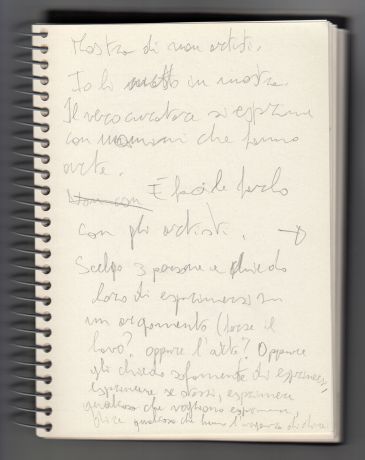 Mostra di non artisti.
Io li metto in mostra.
Il vero curatore si esprime
con uomini che fanno
arte.
Non con È facile farlo
con gli artisti.
Scelgo 3 persone e chiedo
loro di esprimersi su
un argomento (forse il
lavoro? oppure l'arte? Oppure
gli chiedo solamente di esprimersi,
esprimere se stessi, esprimere
qualcosa che vogliono esprimere,
dire qualcosa che hanno l'urgenza di dire